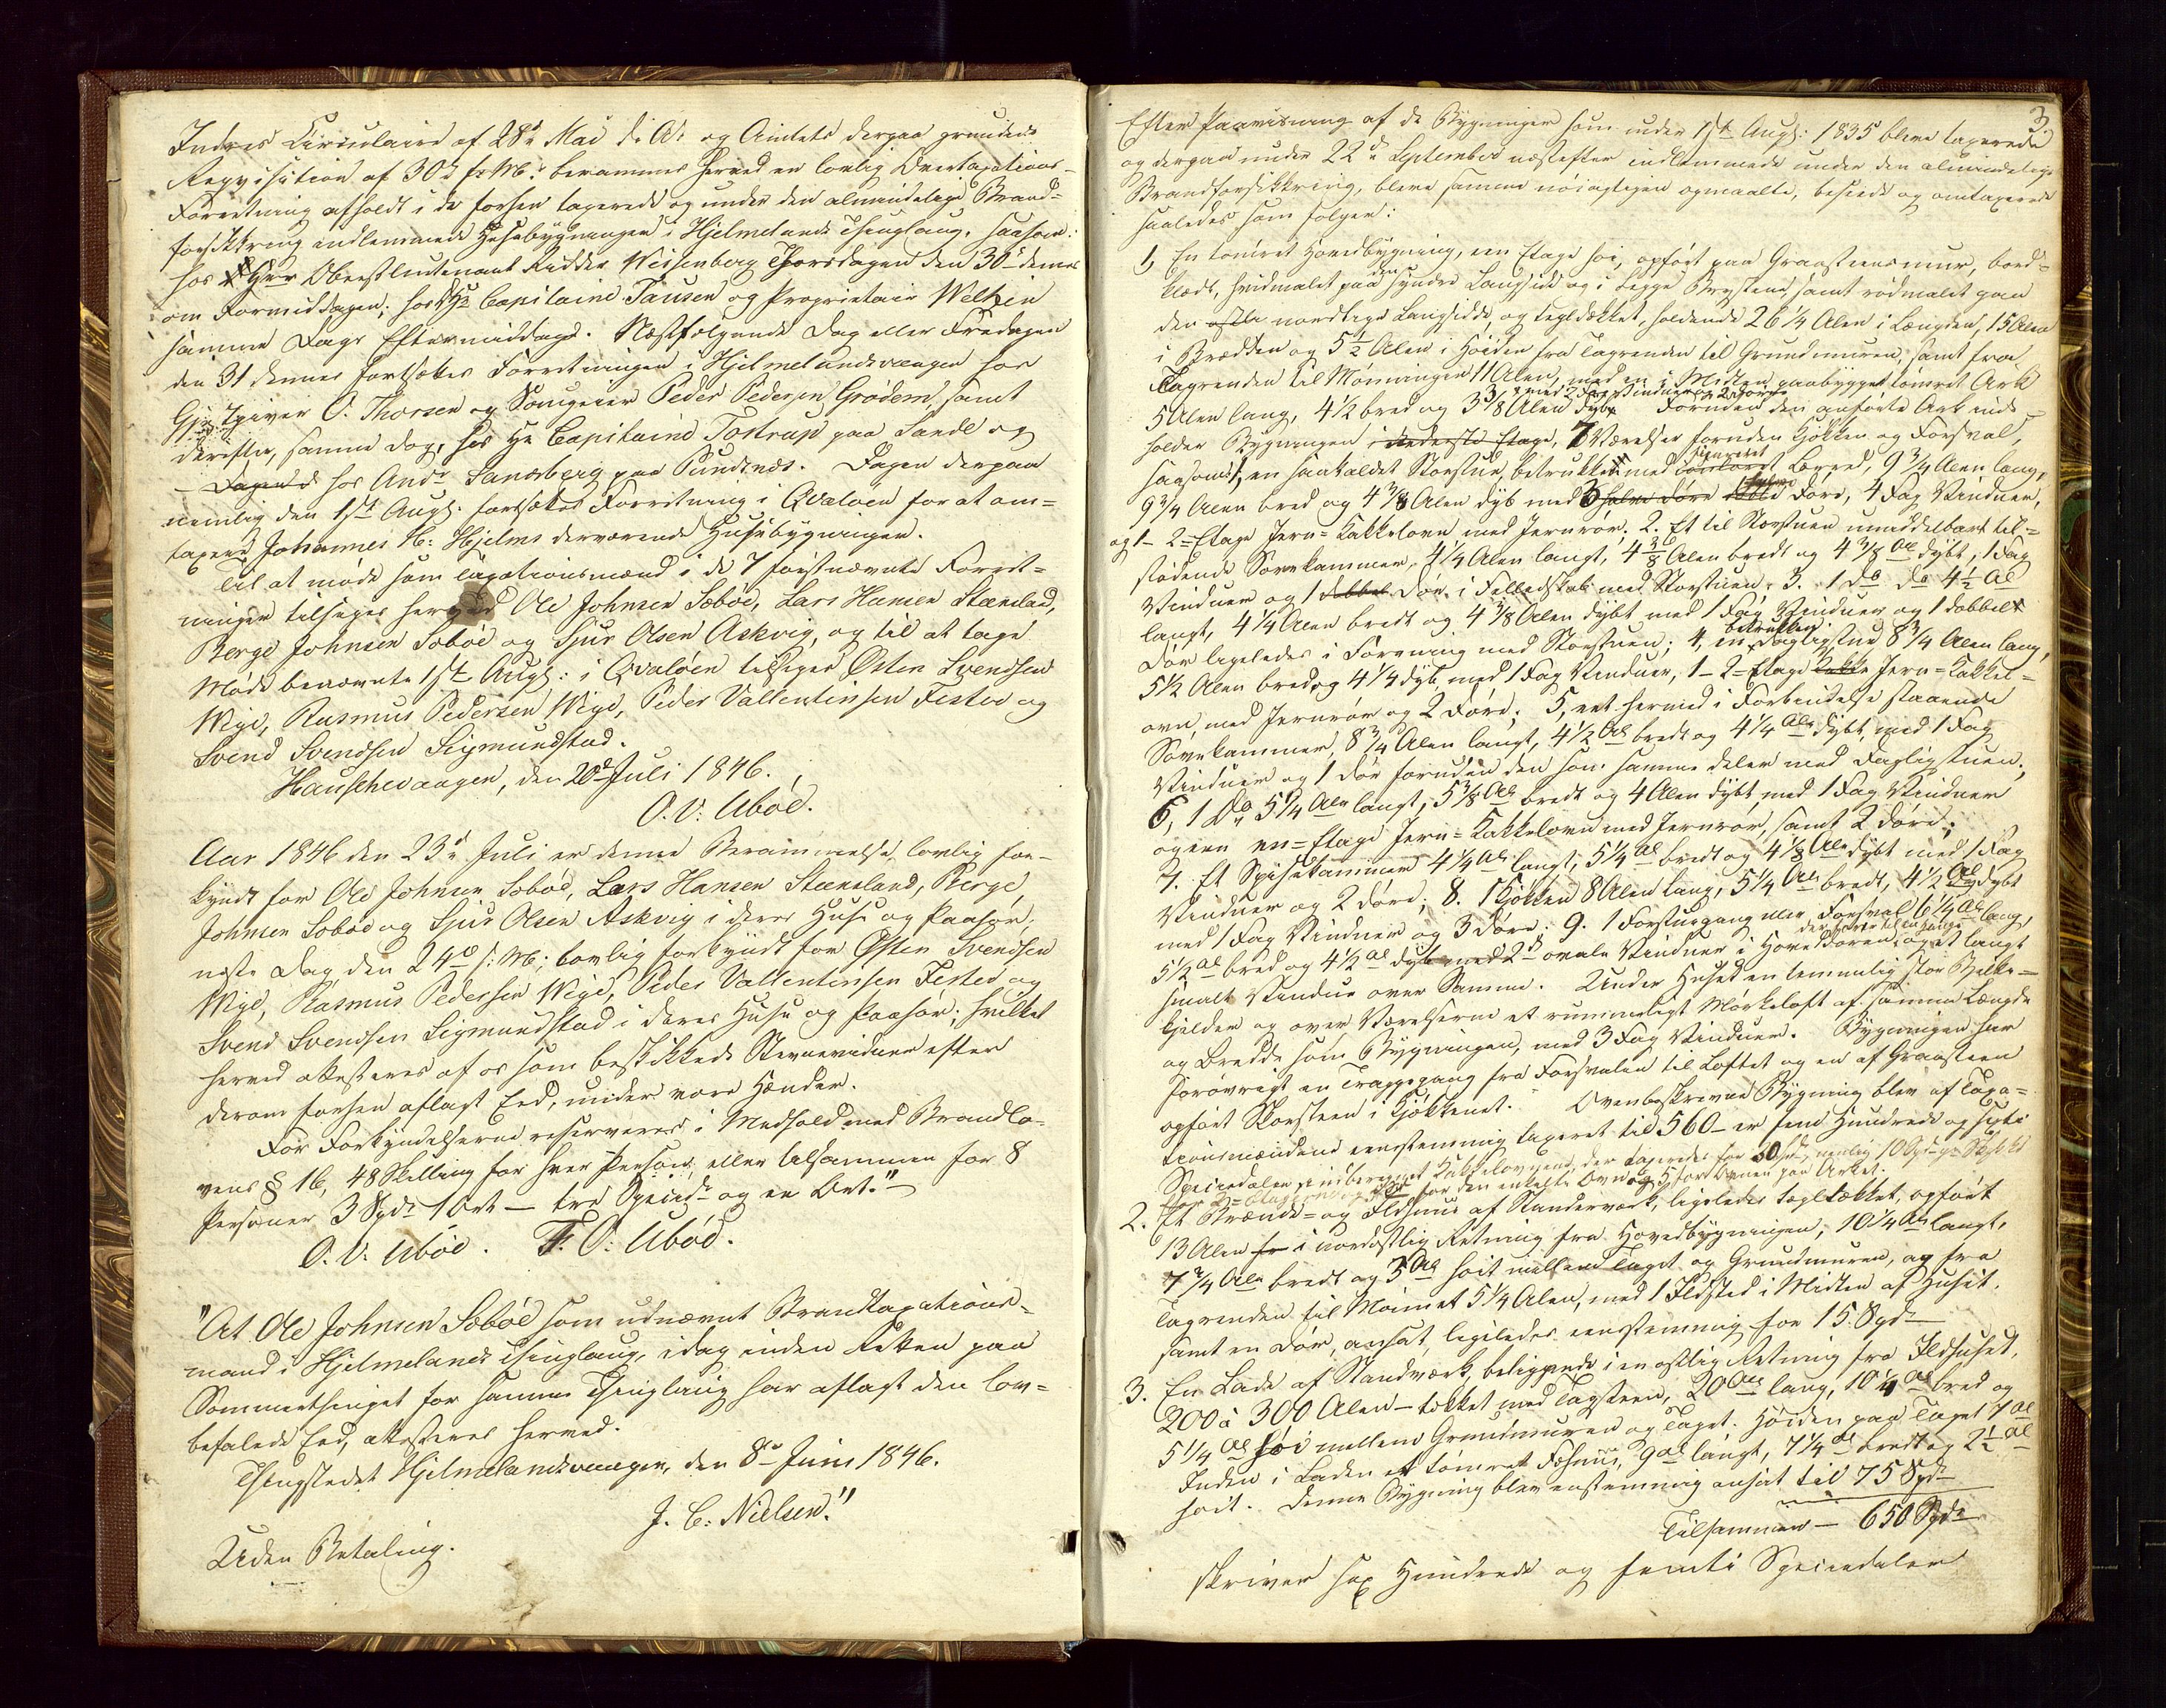 Indres Circulaire af 28de Mai d: A: og Amtets derpaa grundede
Reqvisition af 30de f: M: berammes herved en lovlig Overtaxations-
Forretning afholdt i de forhen taxerede og under den almindelige Brand-
forsikkring indlemmede Husebygninger i Hjelmelands Thinglaug, saasom:
hos Hrr Oberstlieutenant Ridder Weisenberg Thorsdagen den 30te dennes
om Formiddagen; hos Hr Capitaine Tausen og Proprietair Weltzin
samme Dags Eftermiddag. Næstfølgende Dag eller Fredagen
den 31 dennes fortsættes Forretningen i Hjelmelandsvaagen hos
Gjestgiver O. Thorsen og Børgeier Peder Pedersen Grødem, samt
derefter, samme Dag, hos Hr Capitaine Tostrup paa Sande og
hos Ands Sandsberg paa Pundsnæs. Dagen derpaa
nemlig den 1ste Augs: fortsættes Forretning i Qvaløen for at om-
taxere Johannes H: Hjelms derværende Husebygninger.
Til at møde som Taxationsmænd i de 7 førstnævnte Forret-
ninger tilsiges herved Ole Johnsen Sæbøe, Lars Hansen Steensland,
Berge Johnsen Sæbøe og Sjur Olsen Askvig, og til at tage
Møde benævnte 1ste Augs: i Qvaløen tilsiges Østen Svendsen
Wige, Rasmus Pedersen Wige, Peder Vallentinsen Festøe og
Svend Svendsen Sigmundstad.
Hauschevaagen, den 20de Juli 1846.
O. V: Ubøe.
Aar 1846 den 23de Juli er denne Berammelse lovlig for-
kyndt for Ole Johnsen Sæbøe, Lars Hansen Steensland, Berge
Johnsen Sæbøe og Sjur Olsen Askvig i deres Huse og Paahør;
næste Dag den 24de s: M; lovlig forkyndt for Østen Svendsen
Wige, Rasmus Pedersen Wige, Peder Vallentinsen Festøe og
Svend Svendsen Sigmundstad i deres Huse og Paahør; hvilket
herved attesteres af os som beskikkede Stevnevidner efter
derom forhen aflagt Eed, under vore Hænder.
For Forkyndelserne reserveres i Medhold med Brandlo-
vens § 16, 48 Skilling for hver Person, eller tilsammen for 8
Personer 3 Spdr 1 Ort — tre Speciedr og en Ort."
O. V: Ubøe. T. O: Ubøe.
"At Ole Johnsen Sæbøe som udnævnt Brandtaxations-
mand i Hjelmelands Thinglaug, idag inden Retten paa
Sommerthinget for samme Thinglaug har aflagt den lov-
befalede Eed, attesteres herved.
Thingstedet Hjelmelandsvaagen, den 8de Juni 1846.
J. C: Nielsen."
Uden Betaling.
3.
Efter Paaviisning af de Bygninger som under 1ste Augs: 1835 bleve taxerede
og derpaa under 22de September næstefter indlemmede under den almindelige
Brandforsikkring, bleve samme nøiagtigen opmaalte, beseede og omtaxerede
saaledes som følger:
1, En tømret Hovedbygning, een Etage høi, opført paa Graasteensmur, bord-
klædt, hvidmalet paa den syndre Langside og i begge Brystene, samt rødmalet paa
den nordlige Langside, og tegltækket, holdende 26 1/4 Alen i Længden, 15 Alen
i Bredden og 5 1/2 Alen i Høiden fra Tagrenden til Grundmuren, samt fra
Tagrenden til Mønningen 11 Alen, med en i Midten paabygget tømret Ark
5 Alen lang, 4 1/2 bred og 3 3/8 Alen dyb med 2 Fag Vinduer. Foruden den anførte Ark inde-
holder Bygningen i nederste Etage, 7 Værelser foruden Kjøkken og Forsval,
saasom: 1, en saakaldet Storstue, betrukket med Lærred, 9 3/4 Alen lang,
9 3/4 Alen bred og 4 3/8 Alen dyb med halve Døre, 4 Fag Vinduer,
og 1 - 2-Etage Jern-Kakkelovn med Jernrør; 2. Et til Storstuen umiddelbart til-
stødende Sovekammer, 4 1/4 Alen langt, 4 6/8 Alen bredt og 4 3/8 Al dybt, 1 Fag
Vinduer og 1 Dør i Fælledskab med Storstuen; 3. 1 do do 4 1/2 Al
langt, 4 1/4 Alen bredt og 4 3/8 Alen dybt med 1 Fag Vinduer og 1 dobbelt
Dør ligeledes i Forening med Storstuen; 4, en betrukken Dagligstue 8 3/4 Alen lang,
5 1/2 Alen bred og 4 1/4 dyb, med 1 Fag Vinduer, 1 - 2-Etage Jern-Kakkel-
ovn, med Jernrør og 2 Døre; 5, eet hermed i Forbindelse staaende
Sovekammer, 8 3/4 Alen langt, 4 1/2 Al bredt og 4 1/4 Alen dybt, med 1 Fag
Vinduer og 1 Dør foruden den som samme deler med Dagligstuen;
6, 1 do 5 1/4 Alen langt, 5 3/8 Al bredt og 4 Alen dybt med 1 Fag Vinduer
og een en-Etage Jern-Kakkelovn med Jernrør, samt 2 Døre;
7. Et Spisekammer 4 1/4 Al langt, 5 1/4 Al bredt og 4 1/8 Alen dybt med 1 Fag
Vinduer og 2 Døre; 8. 1 Kjøkken 8 Alen lang, 5 1/4 Alen bredt, 4 1/2 Al dybt
med 1 Fag Vinduer og 3 Døre; 9. 1 Forstuegang eller Forsval 6 1/4 Al lang,
5 1/2 Al bred og 4 1/2 Al dyb med 2 ovale Vinduer i Hoveddøren, og et langt
smalt Vindue over Samme. Under Huset en temmelig stor Bjelke-
kjelder og over Værelserne et rummeligt Mørkeloft af samme Længde
og Bredde som Bygningen, med 3 Fag Vinduer. Bygningen har
forøvrigt en Trappegang fra Forsvalen til Loftet og en af Graasteen
opført Skorsteen i Kjøkkenet. Ovenbeskrevne Bygning blev af Taxa-
tionsmændene eenstemmig taxeret til 560 - er fem Hundrede og sexti
Speciedaler, indberegnet Kakkelovnene, der taxeredes for 30 Spd, nemlig 10 Spd pr Stykke
for 2-Etages, 5 for den enkelte Ovn og 5 for Ovnen paa Arken.
2. Et Brænde- og Ildhuus af Stenderværk, ligeledes tegltækket, opført
13 Alen i nordostlig Retning fra Hovedbygningen, 10 1/4 Al langt,
7 3/4 Alen bredt og 3 Al høit mellem Taget og Grundmuren, og fra
Tagrenden til Mønnet 5 1/4 Alen, med 1 Ildsted i Midten af Huset,
samt en Dør, ansat, ligeledes eenstemmig for 15 Spdr
3. En Lade af Standværk, beliggende i en ostlig Retning fra Ildhuset,
200 à 300 Alen - tækket med Tagsteen, 20 Alen lang, 10 1/4 Al bred og
5 1/4 Al høi mellem Grundmuren og Taget. Høiden paa Taget 7 Al
Inden i Laden et tømret Fæhuus, 9 Al langt, 7 1/4 Al bredt og 2 1/2 Al
høit. Denne Bygning blev enstemmig ansat til 75 Spdr
Tilsammen — 650 Spdr
skriver sex Hundrede og femti Speciedaler